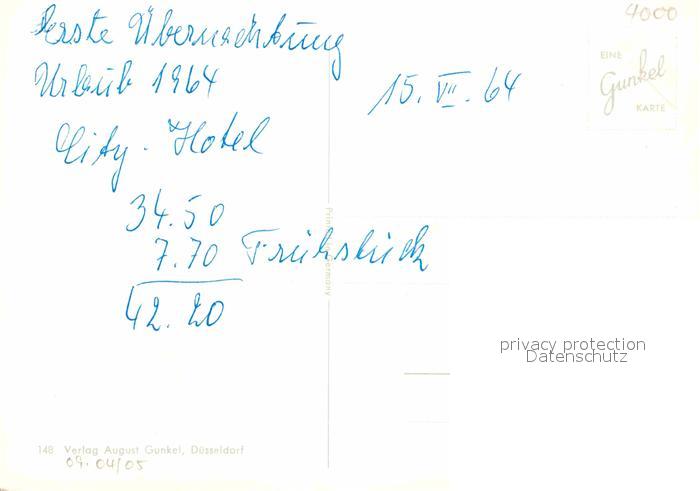 Erste Übernachtung
Urlaub 1964
City-Hotel
34.50
7.70 Frühstück
42.20
15. VII. 64
4000
EINE
Gunkel
KARTE
Printed in Germany
privacy protection
Datenschutz
148 Verlag August Gunkel, Düsseldorf
09.04/05